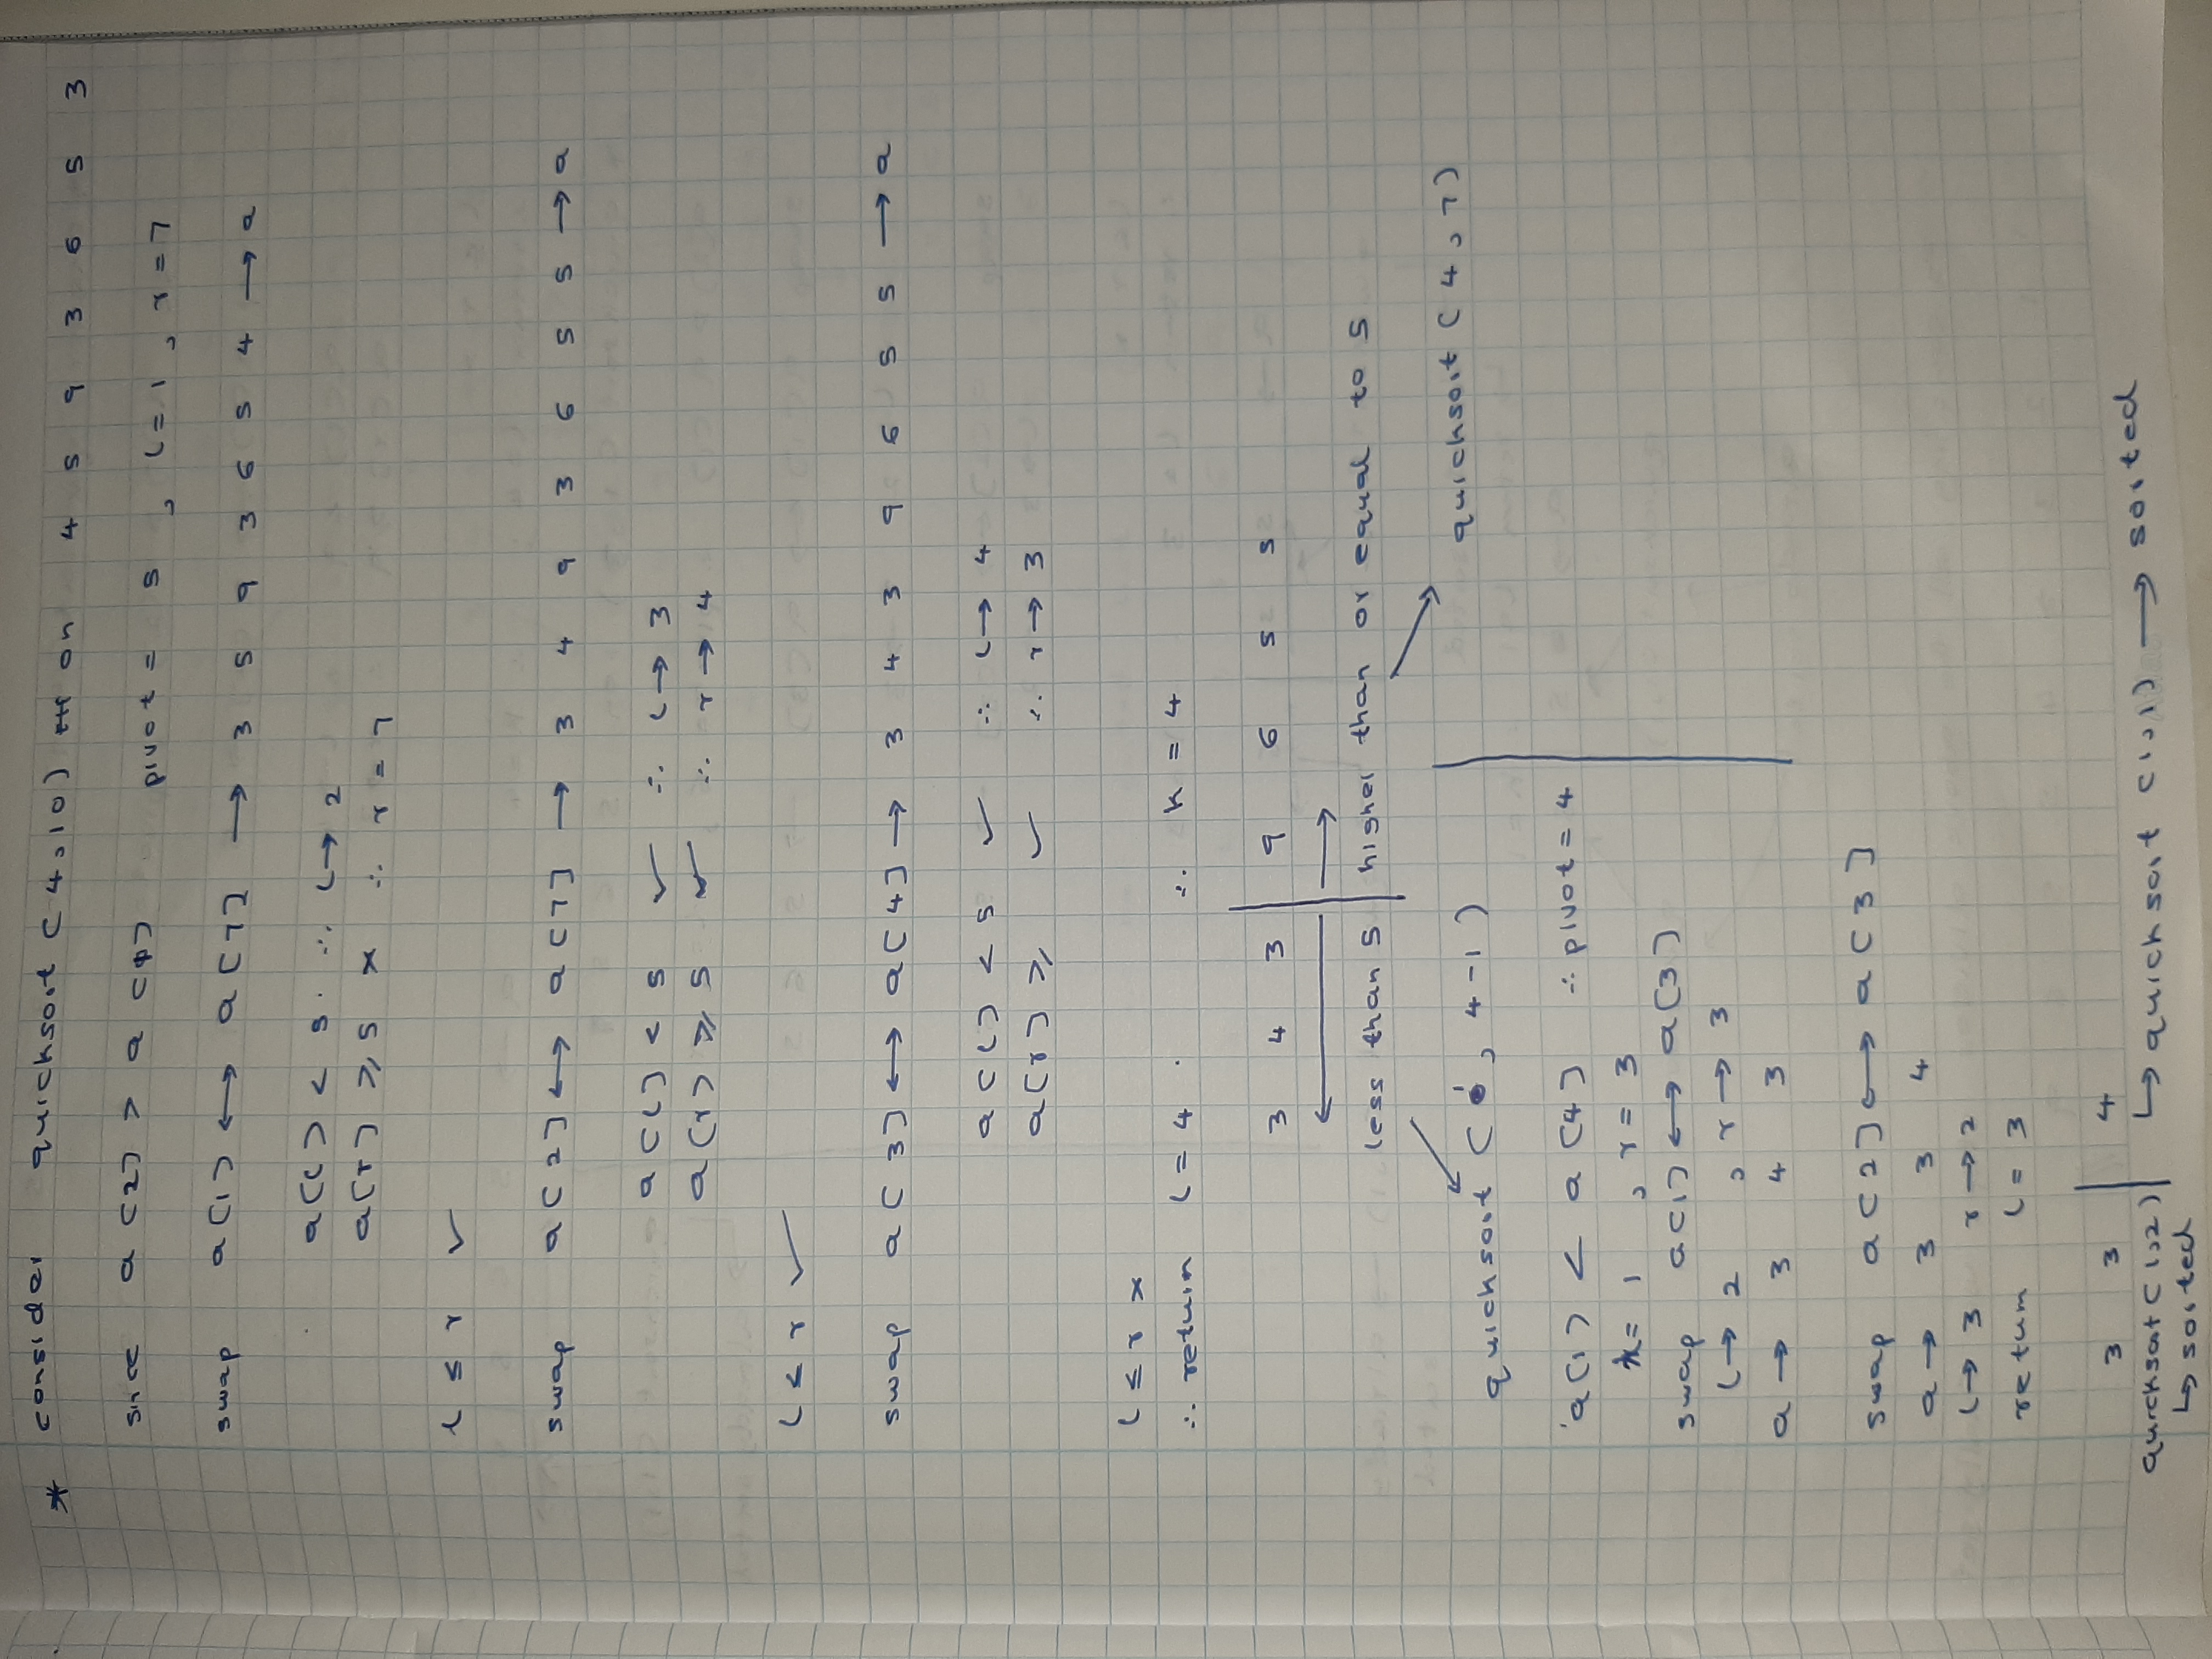 * consider quicksort (4,10) on 4 5 9 3 6 5 3
since a[2] > a[1] pivot = 5 , l = 1 , r = 7
swap a[1] ↔ a[7] → 3 5 9 3 6 5 4 → a
a[l] < 5 . ∴ l → 2
a[r] ⩾ 5 × ∴ r = 7
l ≤ r ✓
swap a[2] ↔ a[7] → 3 4 9 3 6 5 5 → a
a[l] < 5 ✓ ∴ l → 3
a[r] ⩾ 5 ✓ ∴ r → 4
l ≤ r ✓
swap a[3] ↔ a[4] → 3 4 3 9 6 5 5 → a
a[l] < 5 ✓ ∴ l → 4
a[r] ⩾ ✓ ∴ r → 3
l ≤ r ×
∴ return l = 4 . ∴ k = 4
3 4 3 | 9 6 5 5
less than 5 | higher than or equal to 5
quicksort (1, 4-1)
quicksort (4, 7)
a[1] < a[4] ∴ pivot = 4
l = 1 , r = 3
swap a[1] ↔ a[3]
l → 2 , r → 3
a → 3 4 3
swap a[2] ↔ a[3]
a → 3 3 4
l → 3 r → 2
return l = 3
3 3 | 4
quicksort (1,2) | ↳ quicksort (1,1) → sorted
↳ sorted